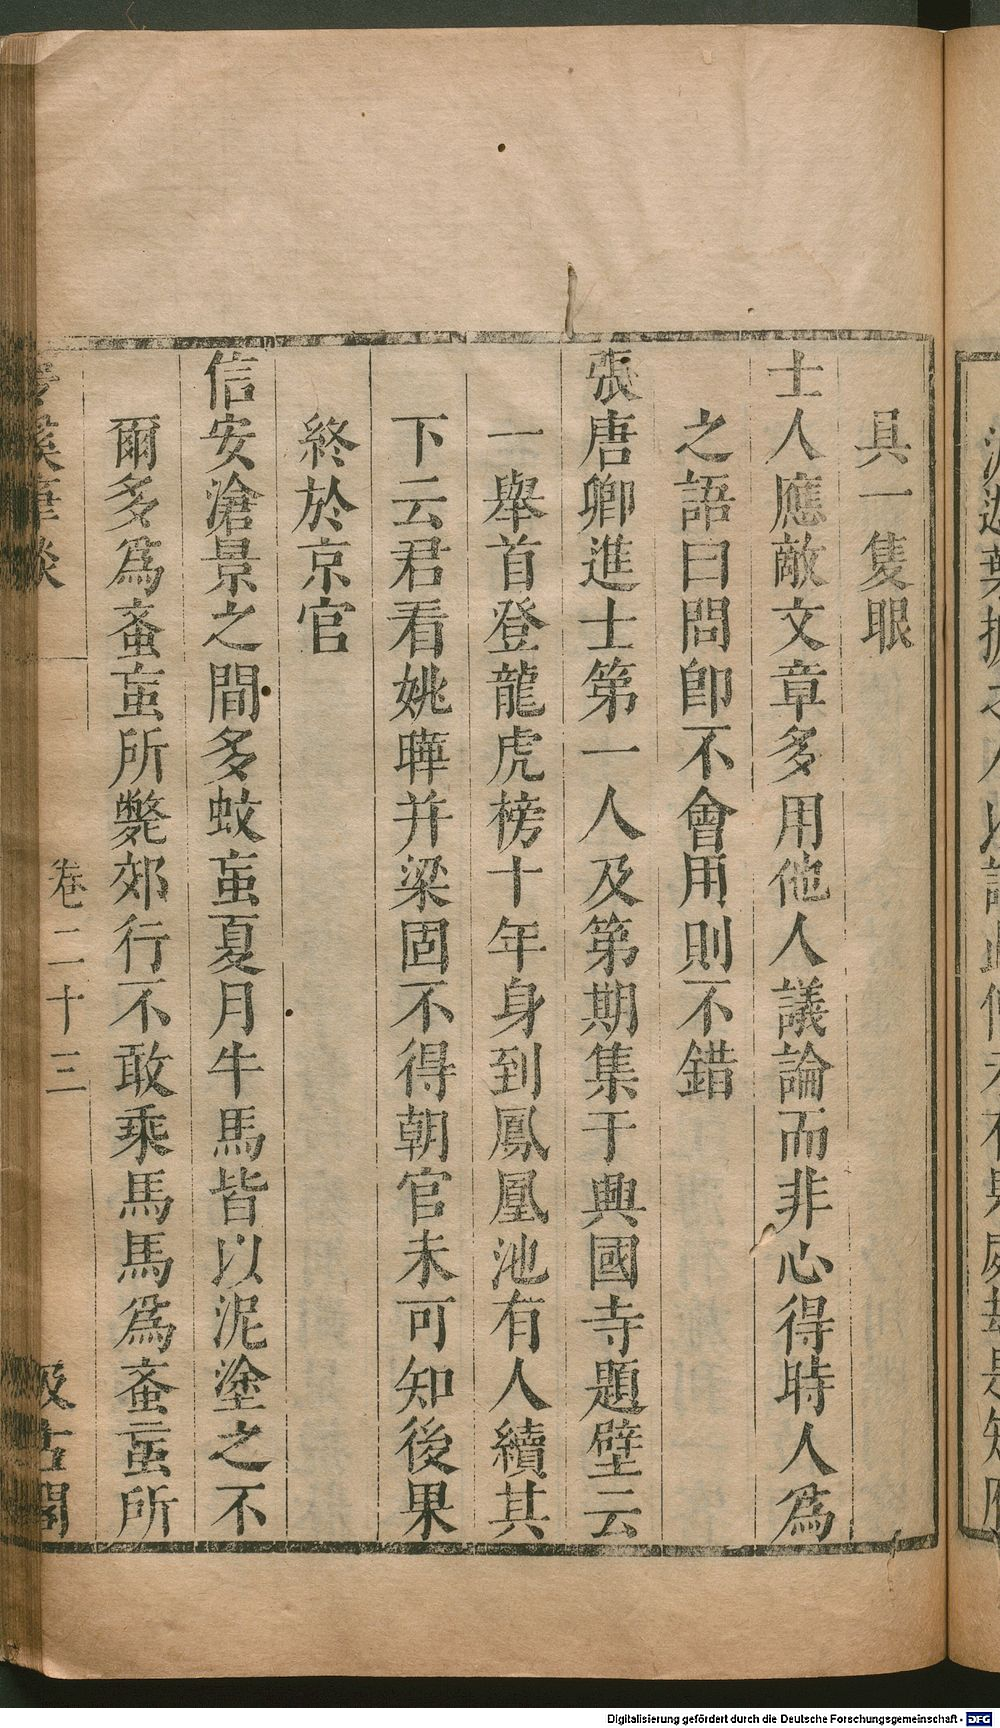 具一隻眼
士人應敵文章多用他人議論而非心得時人爲
之語曰問卽不會用則不錯
張唐卿進士第一人及第期集于興國寺題壁云
一舉首登龍虎榜十年身到鳳凰池有人續其
下云君看姚曄并梁固不得朝官未可知後果
終於京官
信安滄景之間多蚊䖟夏月牛馬皆以泥塗之不
爾多爲䖟䖟所斃郊行不敢乘馬馬爲䖟䖟所
溪筆談
卷二十三
汲古閣
Digitalisierung gefördert durch die Deutsche Forschungsgemeinschaft - DFG